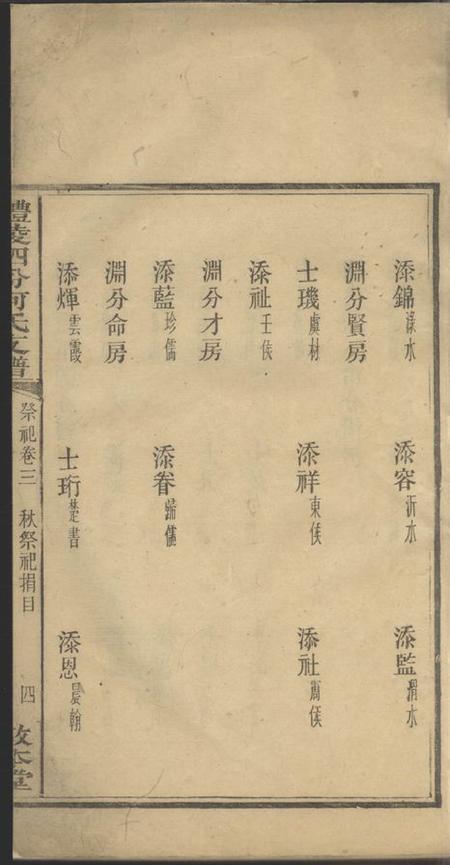 添錦渌水 添容沂水 添監渭水
淵分賢房
士璣虞材 添祥東俟 添社肅俟
添祉壬俟
淵分才房
添藍珍儒 添眷歸儒
淵分命房
添輝雲霞 士珩楚書 添恩晨翰
醴陵四分何氏支譜 祭祀卷三 秋祭祀捐目 四 敦本堂